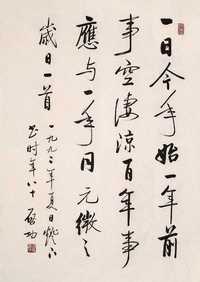 一日今年始一年前
事空淒涼百年事
應与一年同元微之
歲日一首一九九二年夏日燈下
书时年八十啟功